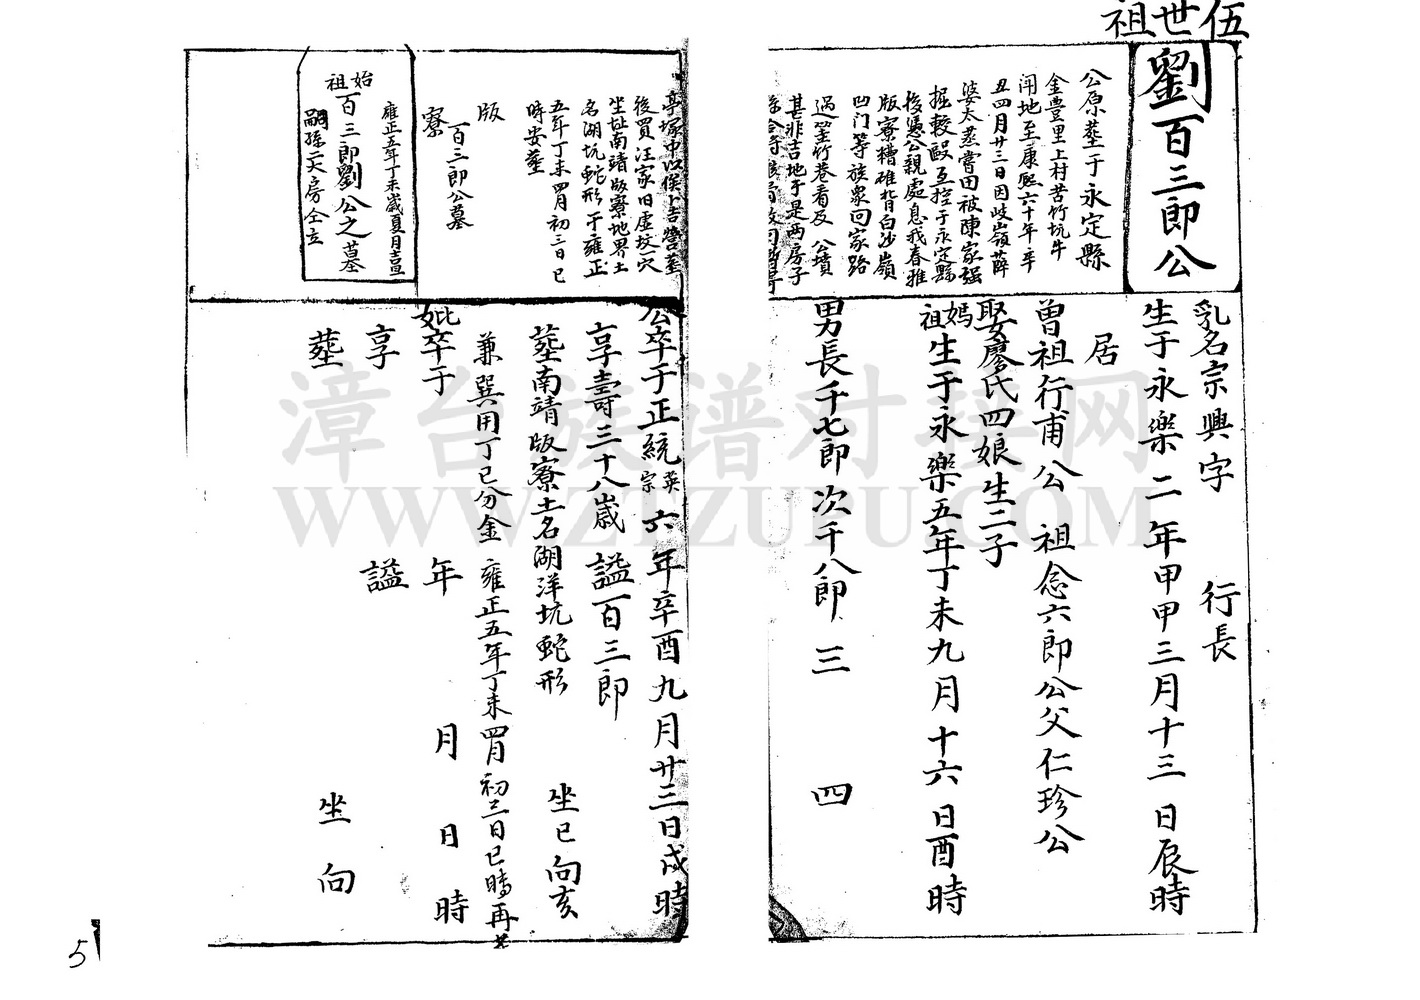 伍世祖
劉百三郎公
公原小葬于永定縣
金豊里上村苦竹坑牛
閗地至康熙六十年辛
丑四月廿三日因岐嶺薛
婆太蒸嘗田被陳家强
掘較毆互控于永定縣
後憑公親處息我春雅
版寮糟碓背白沙嶺
凹门等族衆回家路
過筀竹巷看及 公墳
甚非吉地于是两房子
亭塚中以俟卜吉營葬
後買汪家旧虚坟一穴
坐址南靖版寮地界土
名湖坑蛇形于雍正
五年丁未四月初三日巳
時安葬
版寮
百三郎公墓
雍正五年丁未歲夏月吉旦
始祖百三郎劉公之墓
嗣孫二大房仝立
乳名宗興字 行長
生于永樂二年甲申三月十三日辰時
居
曾祖行甫公 祖念六郎公父仁珍公
娶廖氏四娘生二子
祖媽生于永樂五年丁未九月十六日酉時
男長千七郎次千八郎 三 四
公卒于正統英宗六年辛酉九月廿三日戌時
享壽三十八歲 謚百三郎
葬南靖版寮土名湖洋坑蛇形 坐巳向亥
兼巽用丁巳分金 雍正五年丁未四月初三日巳時再葬
妣卒于 年 月 日 時
享 謚
葬 坐 向
漳台族谱对接网
WWW.ZTZUPU.COM
5